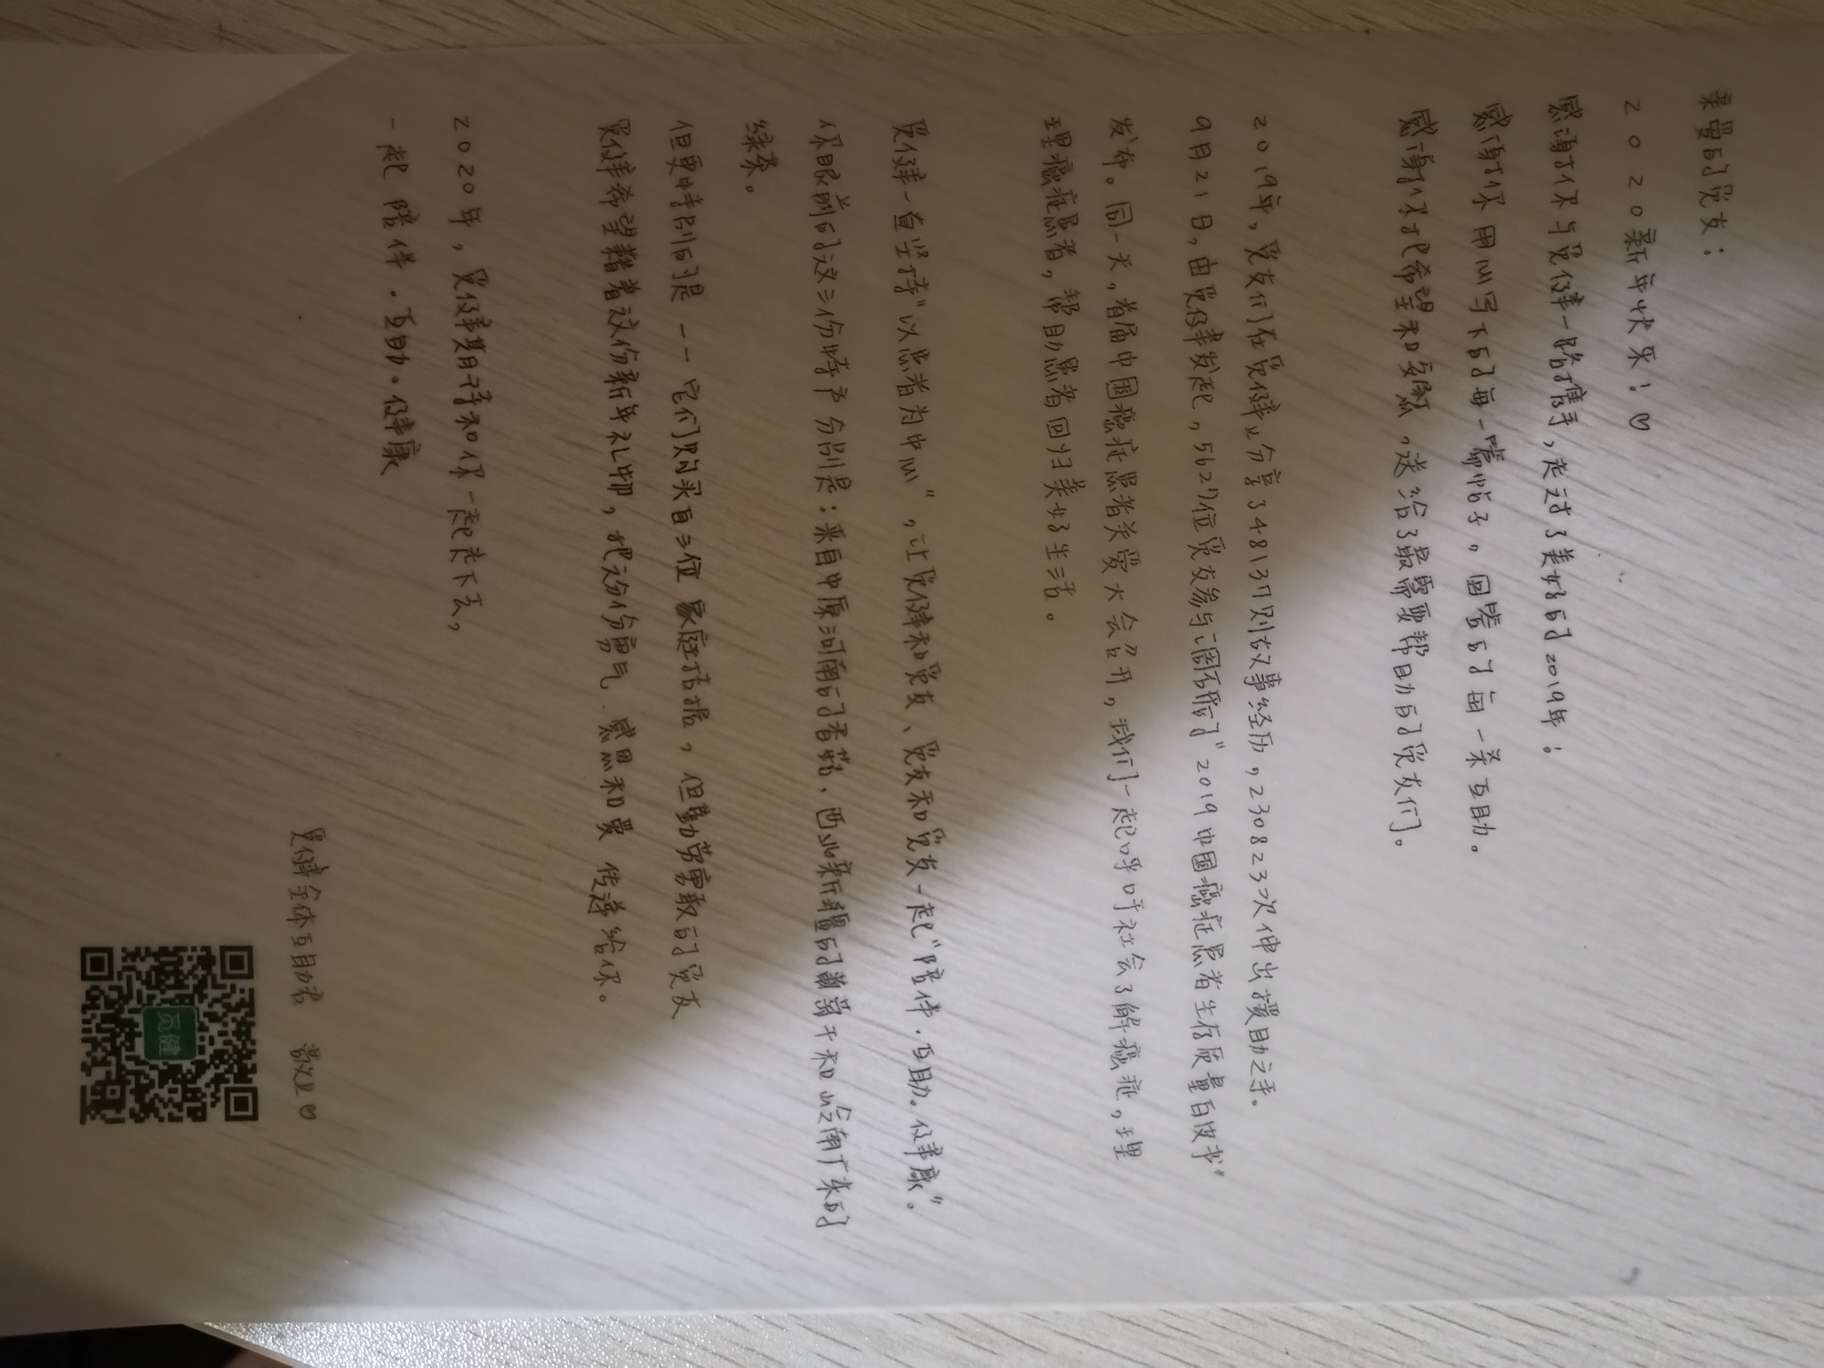 亲爱的觅友：
2020新年快乐！♡
感谢你与觅健一路携手，走过了美好的2019年；
感谢你用心写下的每一篇帖子。回答的每一条互助。
感谢你把希望和安慰，送给了最需要帮助的觅友们。
2019年，觅友们在觅健上分享了48137则故事经历，230823次伸出援助之手。
9月21日，由觅健发起，5627位觅友参与调研的“2019中国癌症患者生存质量白皮书”
发布。同一天，首届中国癌症患者关爱大会召开，我们一起呼吁社会了解癌症，理
理癌症患者，帮助患者回归美好生活。
觅健一直坚持“以患者为中心”，让觅健和觅友、觅友和觅友一起“陪伴·互助·健康”。
你眼前的这三份特产分别是：来自中原河南的香菇、西北新疆的葡萄干和岭南广东的
绿茶。
但更特别的是——它们购买自三位家庭拮据，但勤劳勇敢的觅友
觅健希望藉着这份新年礼物，把这份勇气、感恩和爱 传递给你。
2020年，觅健期待和你一起走下去，
一起 陪伴·互助·健康
觅健全体互助君 敬上♡
觅健